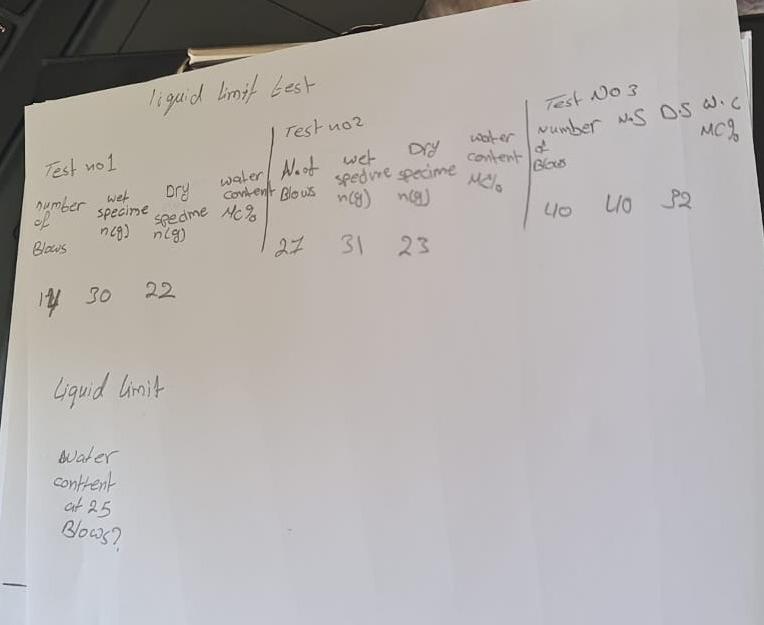 liquid limit test
Test no1
number of Blows
wet specime n(g)
Dry specime n(g)
water content MC%
30 22
Test no2
N.of Blows
wet specime n(g)
Dry specime n(g)
water content MC%
27 31 23
Test No 3
Number of Blows
W.S
D.S
W.C MC%
40 40 32
Liquid Limit
Water
content
at 25
Blows?